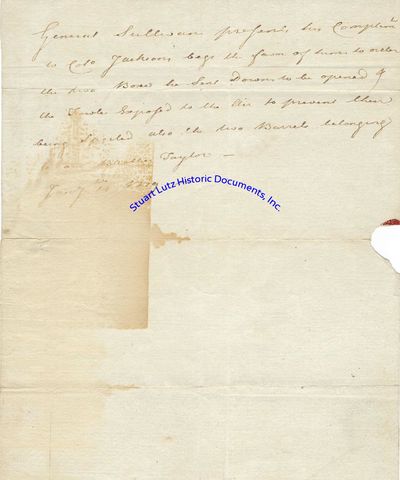 General Sullivan presents his Complimts
to Colo Jackson begs the favor of him to order
the two Boxes he Sent Down to be opened &
the Exposed to the Air to prevent their
being Spoiled also the two Barrels belonging
to Taylor —
Stuart Lutz Historic Documents, Inc.